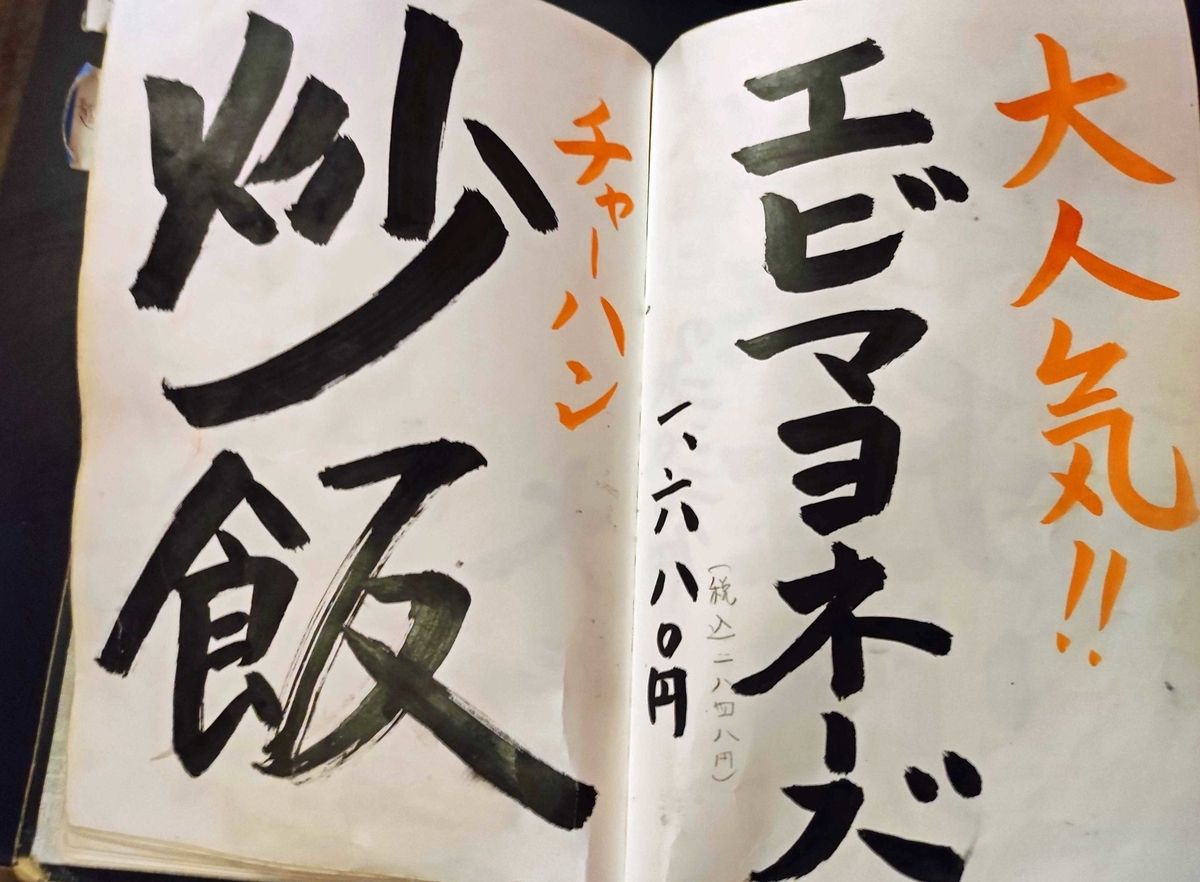 大人気!!
エビマヨネーズ
(税込一、八四八円)
一、六八〇円
チャーハン
炒飯